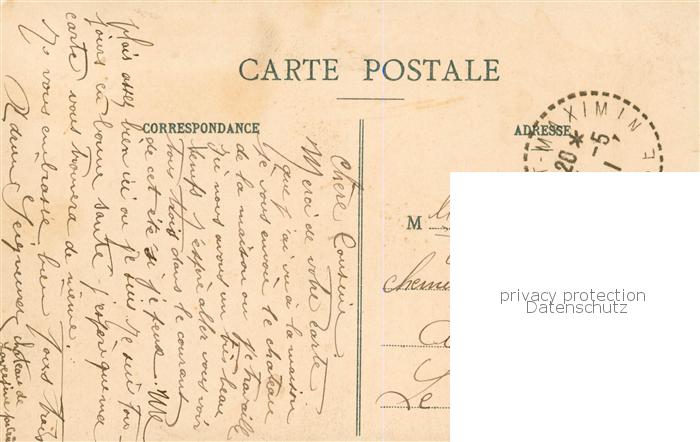 CARTE POSTALE
CORRESPONDANCE
ADRESSE
Chère Cousine,
Merci de votre carte
que j'ai vu à la maison
Je vous envoie le château
de la maison ou je travaille
ici nous avons un très beau
temps j'espère aller vous voir
tous trois dans le courant
de cet été si je peux. Me
plais assez bien ici ou je suis. Je suis tou-
jours en bonne santé j'espère que ma
carte vous trouvera de même.
Je vous embrasse bien tous trois
château de
M
Chemin
Le
MAXIMIN
20 * 5
privacy protection
Datenschutz